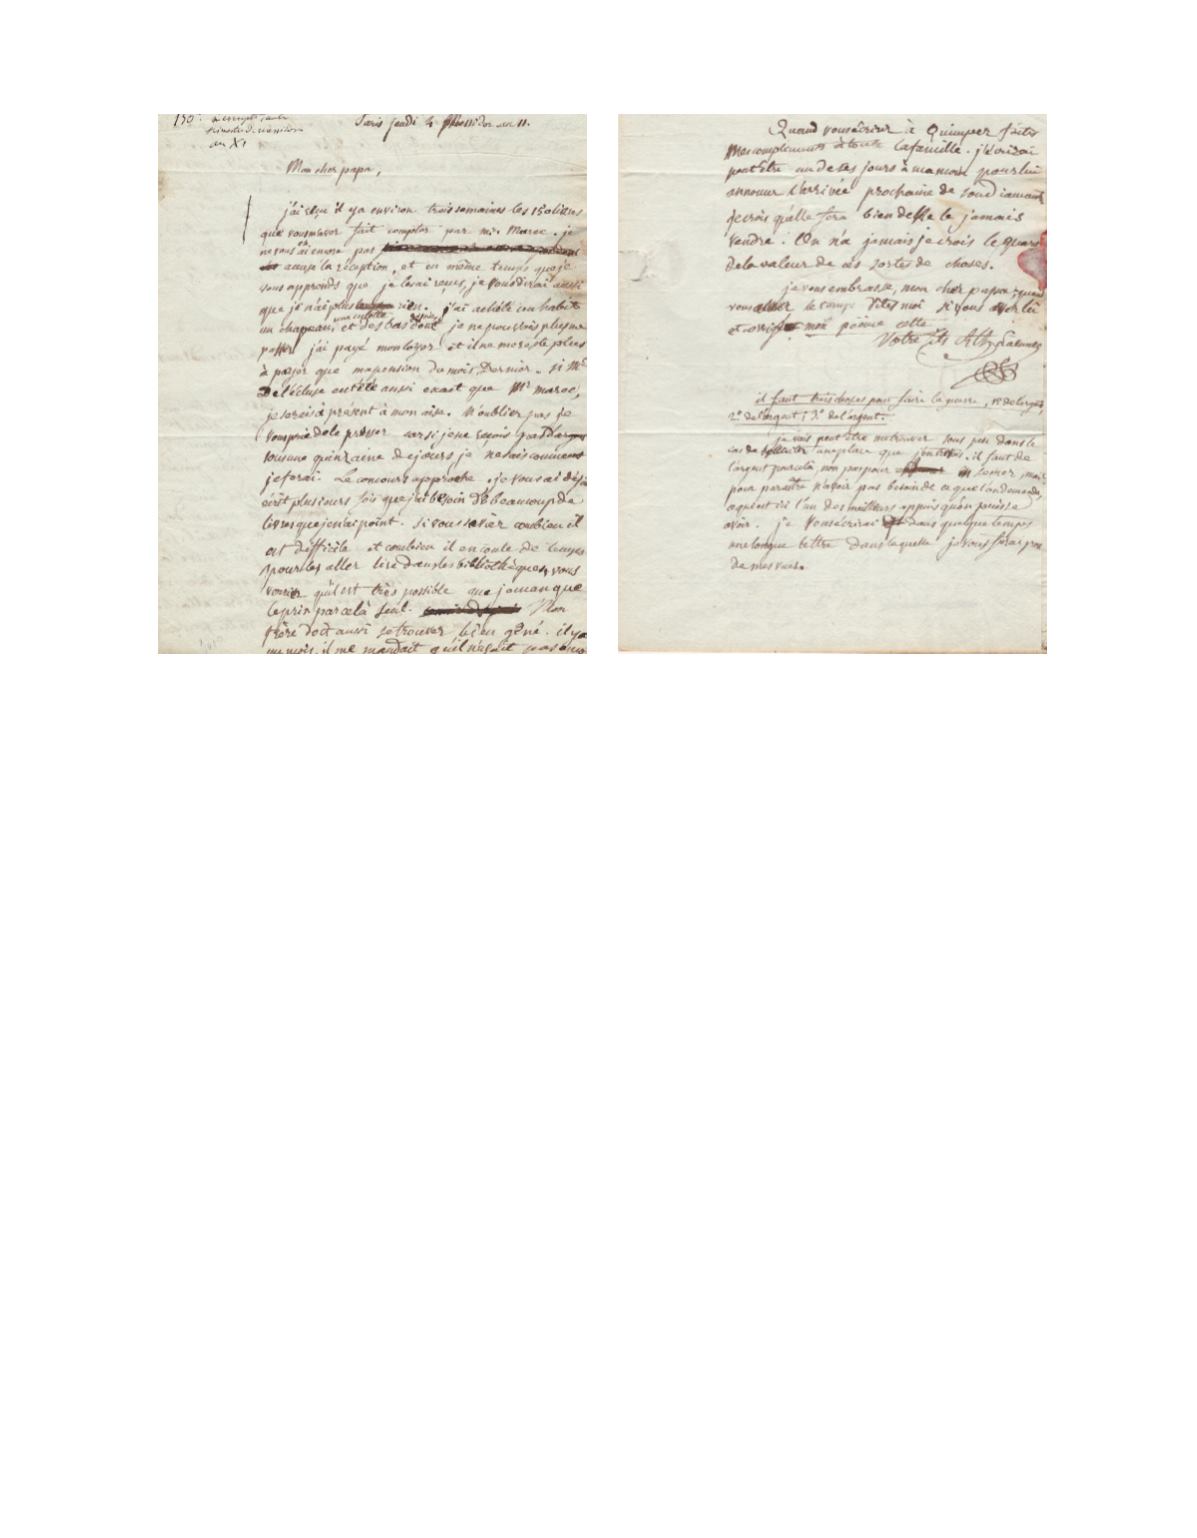 150.
an XI
Paris jeudi 4 Messidor an 11.
Mon cher papa,
j'ai reçu il y a environ trois semaines les 150 livres
que vous m'avez fait compter par mr. Maroc. je
ne vous en ai encore pas
accusé la réception, et en même temps que je
vous apprends que je les ai reçues, je vous dirai aussi
que je n'ai plus rien. j'ai acheté un habit
un chapeau, une culotte et des bas dont je ne pouvois plus me
passer j'ai payé mon loyer et il ne me reste plus
à payer que ma pension du mois dernier. si Mr.
De l'écluse eut été aussi exact que Mr. maroc,
je serois à présent à mon aise. N'oubliez pas je
vous prie de le presser car si je ne reçois pas d'argent
sous une quinzaine de jours je ne sais comment
je ferai. Le concours approche. je vous ai déjà
écrit plusieurs fois que j'ai besoin de beaucoup de
livres que je n'ai point. si vous saviez combien il
est difficile et combien il en coute de temps
pour les aller lire dans les bibliothèques, vous
verriez qu'il est très possible que je manque
le prix par cela seul. Mon
frère doit aussi se trouver bien gêné. il y a
un mois, il me mandait qu'il n'avait pas
Quand vous écrirez à Quimper faites
mes complements à toute la famille. j'écrirai
peut être un de ces jours à maman pour lui
annoncer l'arrivée prochaine de son diamant
je crois qu'elle fera bien de ne le jamais
vendre. On n'a jamais je crois le quart
de la valeur de ces sortes de choses.
je vous embrasse, mon cher papa. quand
vous aurez le temps dites moi si vous avez lu
et corrigé mon poëme cette
Votre fils
il faut trois choses pour faire la guerre, 1º de l'argent,
2º de l'argent, 3º de l'argent.
je vais peut être me trouver sous peu dans le
cas de solliciter une place que j'entrevois. il faut de
l'argent pour cela, non pas pour en semer, mais
pour paraitre n'avoir pas besoin de ce que l'on demande,
ce qui est ici l'un des meilleurs appuis qu'on puisse
avoir. je vous écrirai dans quelque temps
une longue lettre dans laquelle je vous ferai part
de mes vues.